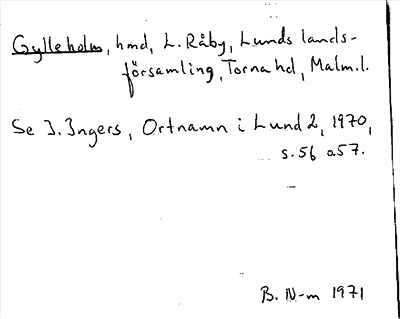 Gylleholm, hmd, L. Råby, Lunds lands-
församling, Torna hd, Malm.l.
Se I. Ingers, Ortnamn i Lund 2, 1970,
s. 56 o 57.
B. N-m 1971